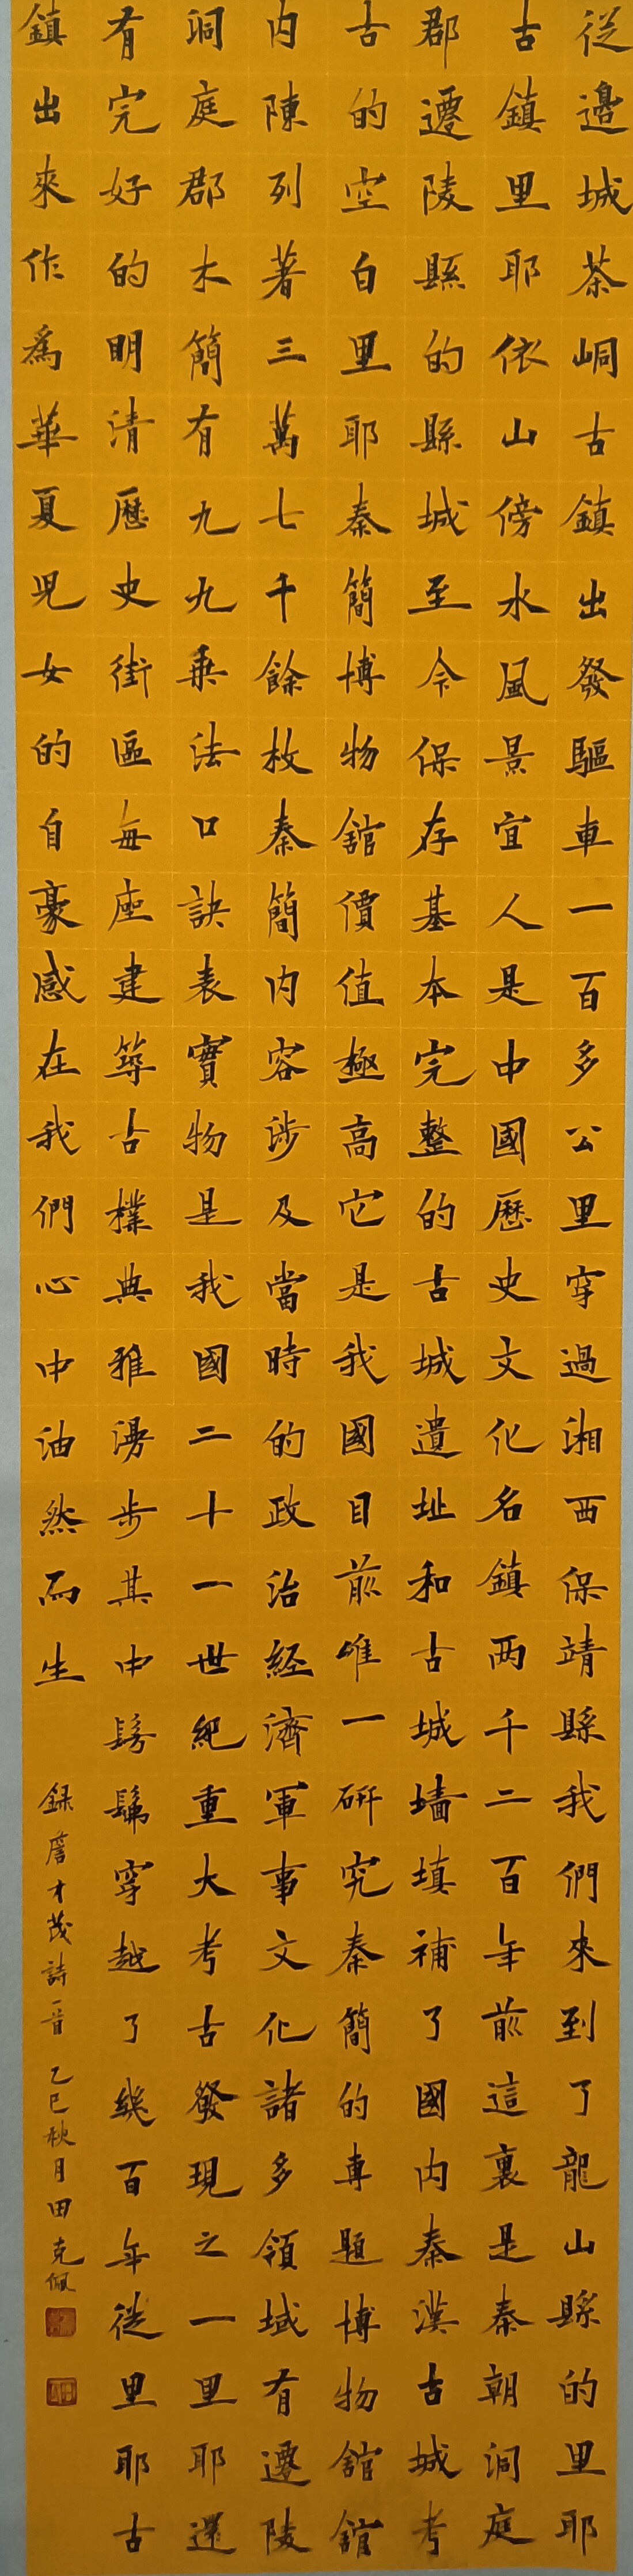 從邊城茶峒古鎮出發驅車一百多公里穿過湘西保靖縣我們來到了龍山縣的里耶
古鎮里耶依山傍水風景宜人是中國歷史文化名鎮两千二百年前這裏是秦朝洞庭
郡遷陵縣的縣城至今保存基本完整的古城遺址和古城墻填補了國内秦漢古城考
古的空白里耶秦簡博物館價值極高它是我國目前唯一研究秦簡的專題博物館館
内陳列著三萬七千餘枚秦簡内容涉及當時的政治経濟軍事文化諸多領域有遷陵
洞庭郡木簡有九九乗法口訣表實物是我國二十一世紀重大考古發現之一里耶還
有完好的明清歷史街區每座建築古樸典雅漫步其中髣髴穿越了幾百年從里耶古
鎮出來作為華夏児女的自豪感在我們心中油然而生
録詹才茂詩一首 乙巳秋月田克佩